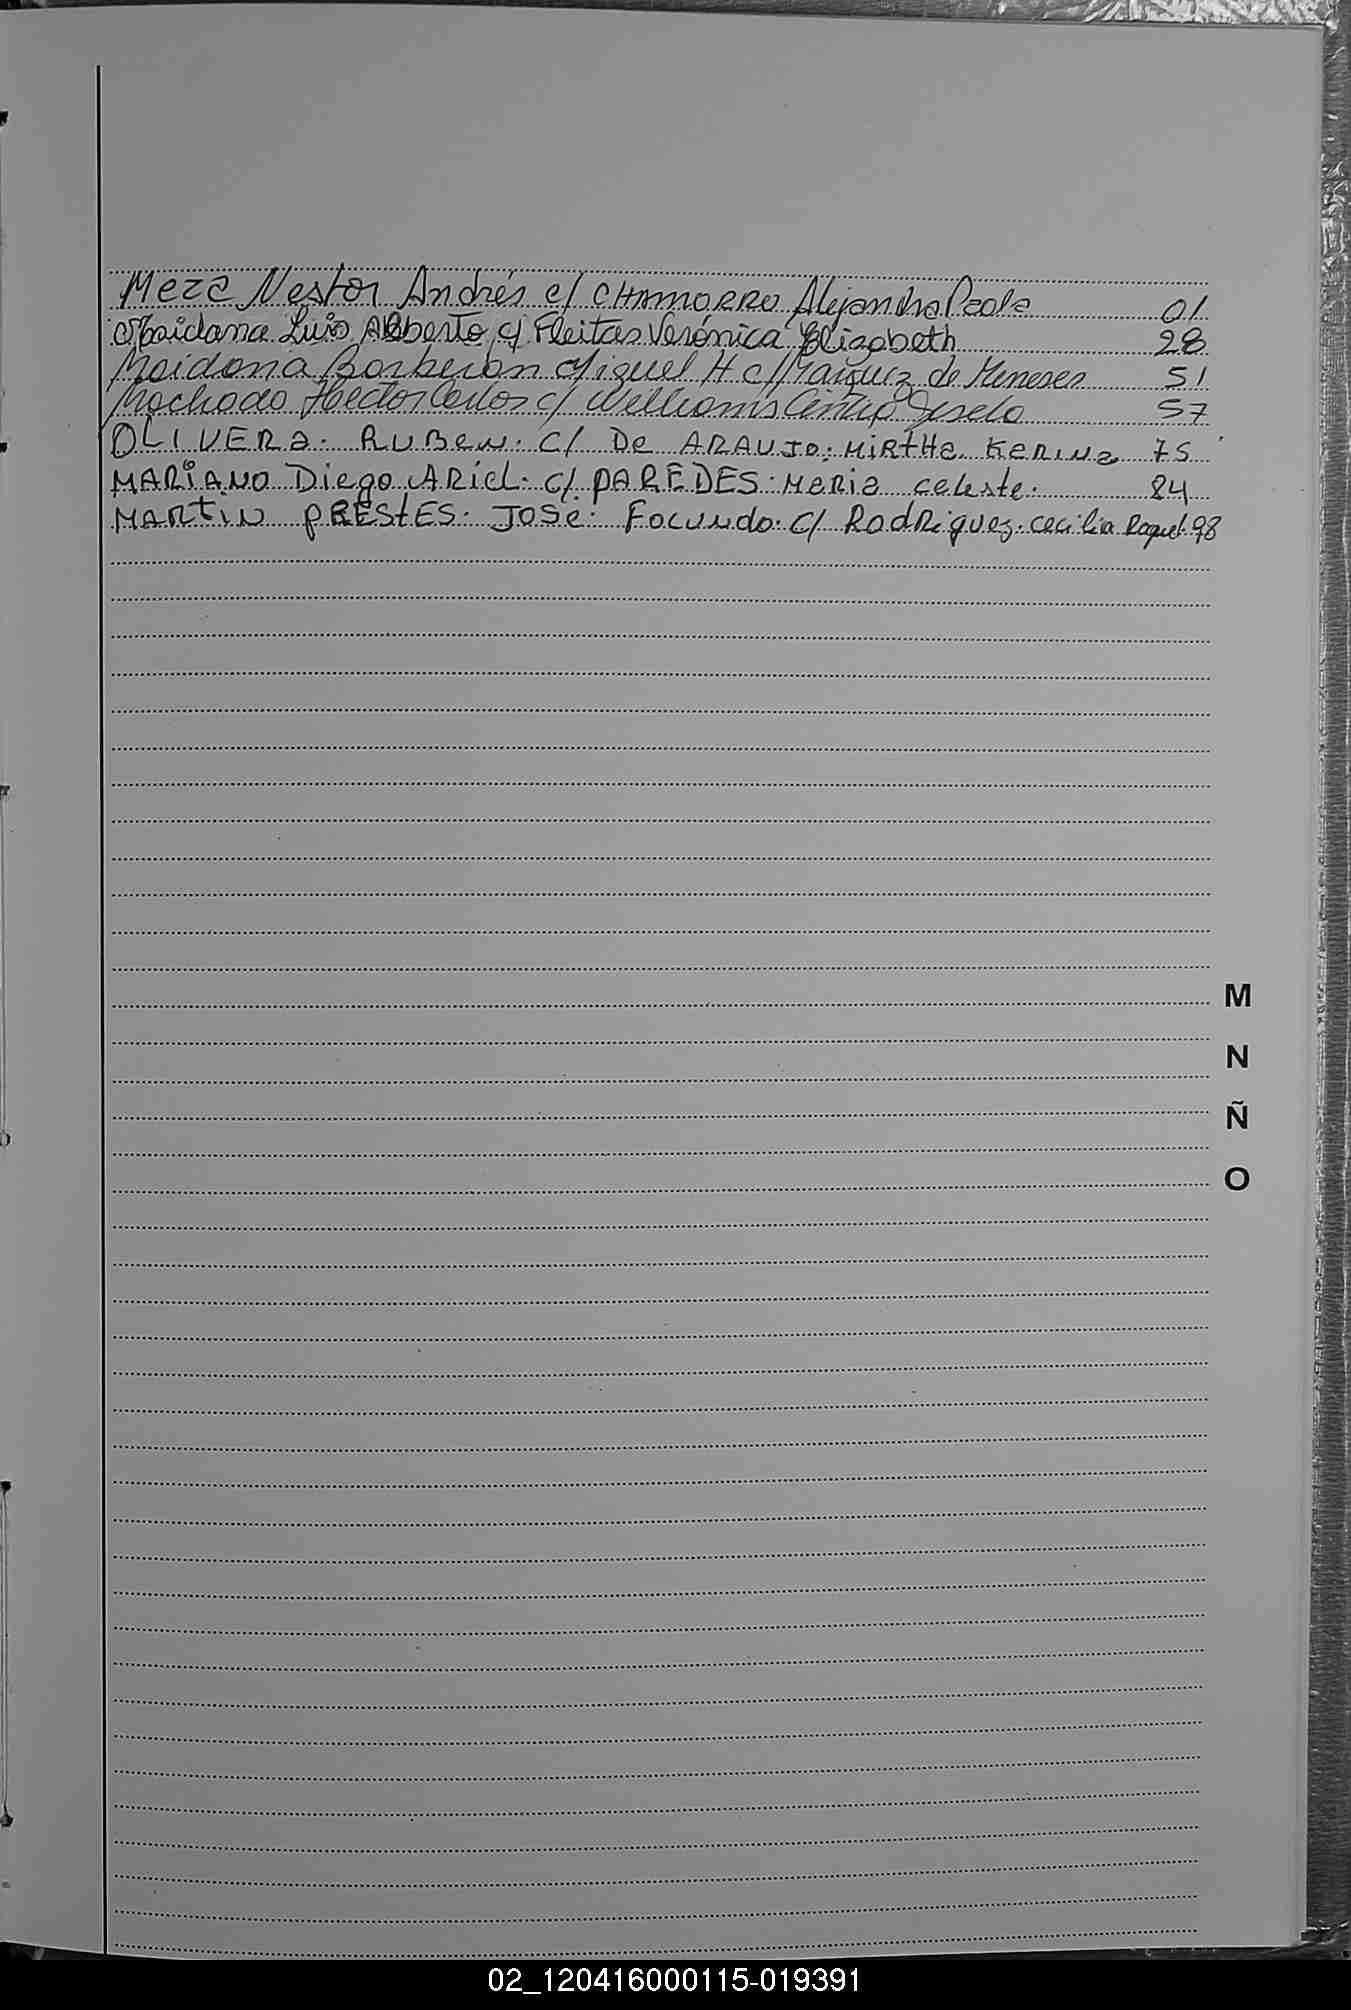 Meza Nestor Andrés c/ CHAMORRO Alejandra Paola 01
Maidana Luis Alberto c/ Fleitas Verónica Elizabeth 28
Maidana Barberan Miguel H c/ Marquez de Meneses 51
Machado Hector Carlos c/ Williams Gisela 57
OLIVERA. RUBEN. C/ De ARAUJO. MIRTHA KERINA 75
MARIANO Diego ARIEL. c/ PAREDES. Maria celeste. 84
MARTIN PRESTES. JOSE. Facundo. C/ RodRiguez. cecilia Raquel. 98
M
N
Ñ
O
02_120416000115-019391